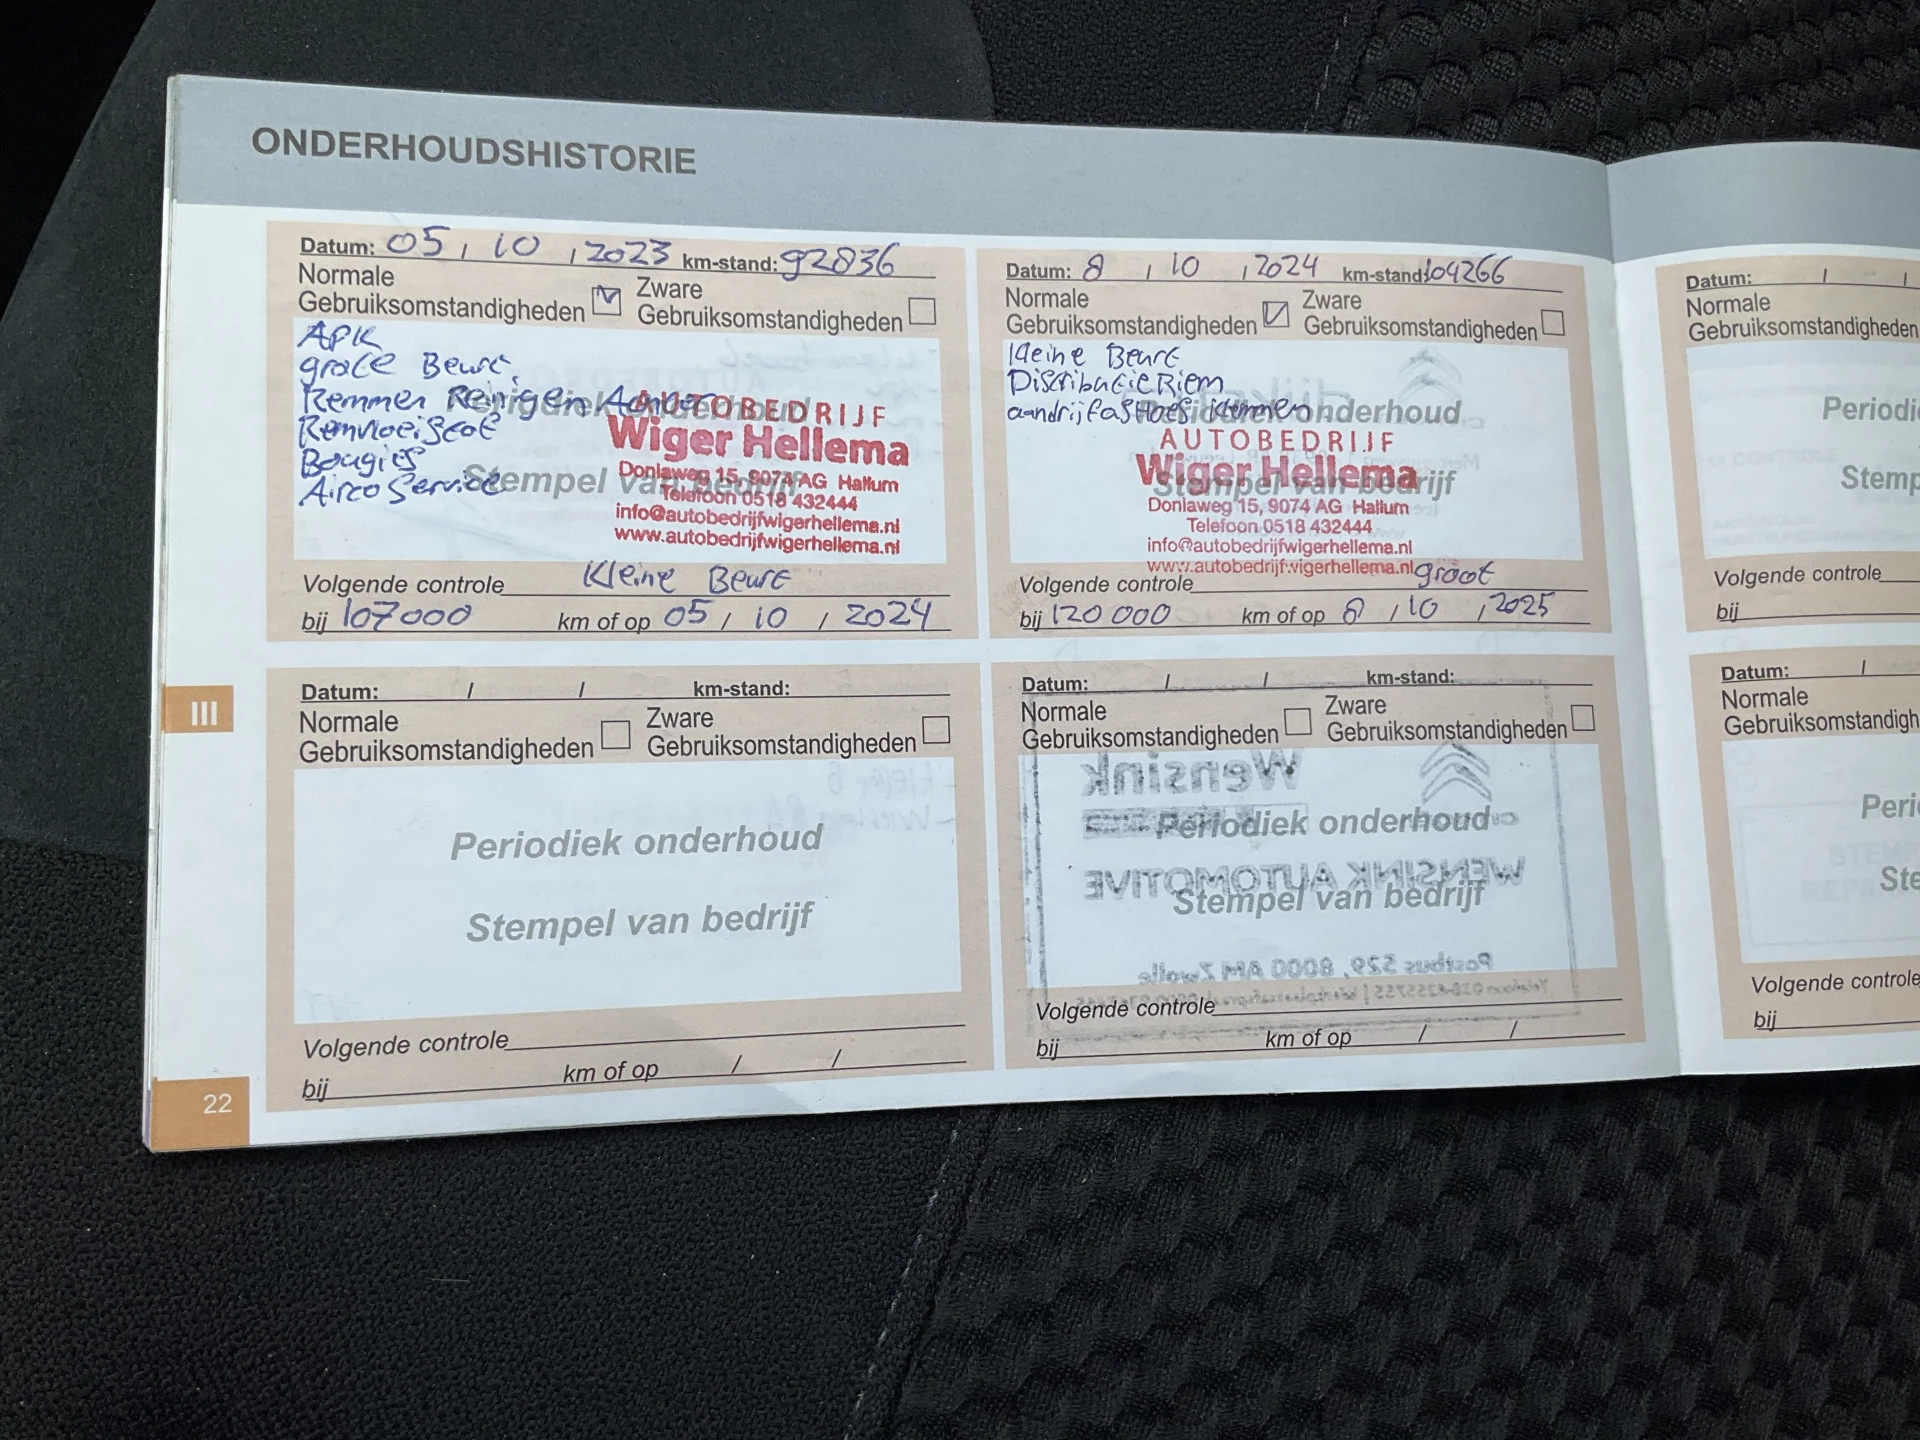 ONDERHOUDSHISTORIE
Datum: 05 / 10 / 2023 km-stand: 92836
Normale
Gebruiksomstandigheden
Zware
Gebruiksomstandigheden
APK
grote Beurt
Remmen Reinigen Achter
Remvloeistof
Bougies
Airco Service
Periodiek onderhoud
Stempel van bedrijf
AUTOBEDRIJF
Wiger Hellema
Doniaweg 15, 9074 AG Hallum
Telefoon 0518 432444
info@autobedrijfwigerhellema.nl
www.autobedrijfwigerhellema.nl
Volgende controle Kleine Beurt
bij 107000 km of op 05 / 10 / 2024
Datum: 8 / 10 / 2024 km-stand: 104266
Normale
Gebruiksomstandigheden
Zware
Gebruiksomstandigheden
Kleine Beurt
Distributie Riem
aandrijfashoes klemmen
Periodiek onderhoud
Stempel van bedrijf
AUTOBEDRIJF
Wiger Hellema
Doniaweg 15, 9074 AG Hallum
Telefoon 0518 432444
info@autobedrijfwigerhellema.nl
www.autobedrijfwigerhellema.nl
Volgende controle groot
bij 120 000 km of op 8 / 10 / 2025
Datum: / /
Normale
Gebruiksomstandigheden
Periodi
Stemp
Volgende controle
bij
III
Datum: / / km-stand:
Normale
Gebruiksomstandigheden
Zware
Gebruiksomstandigheden
Periodiek onderhoud
Stempel van bedrijf
Volgende controle
bij km of op / /
Datum: / / km-stand:
Normale
Gebruiksomstandigheden
Zware
Gebruiksomstandigheden
Wensink
Periodiek onderhoud
WENSINK AUTOMOTIVE
Stempel van bedrijf
Postbus 529, 8000 AM Zwolle
Volgende controle
bij km of op / /
Datum: /
Normale
Gebruiksomstandigh
Peri
Ste
Volgende controle
bij
22